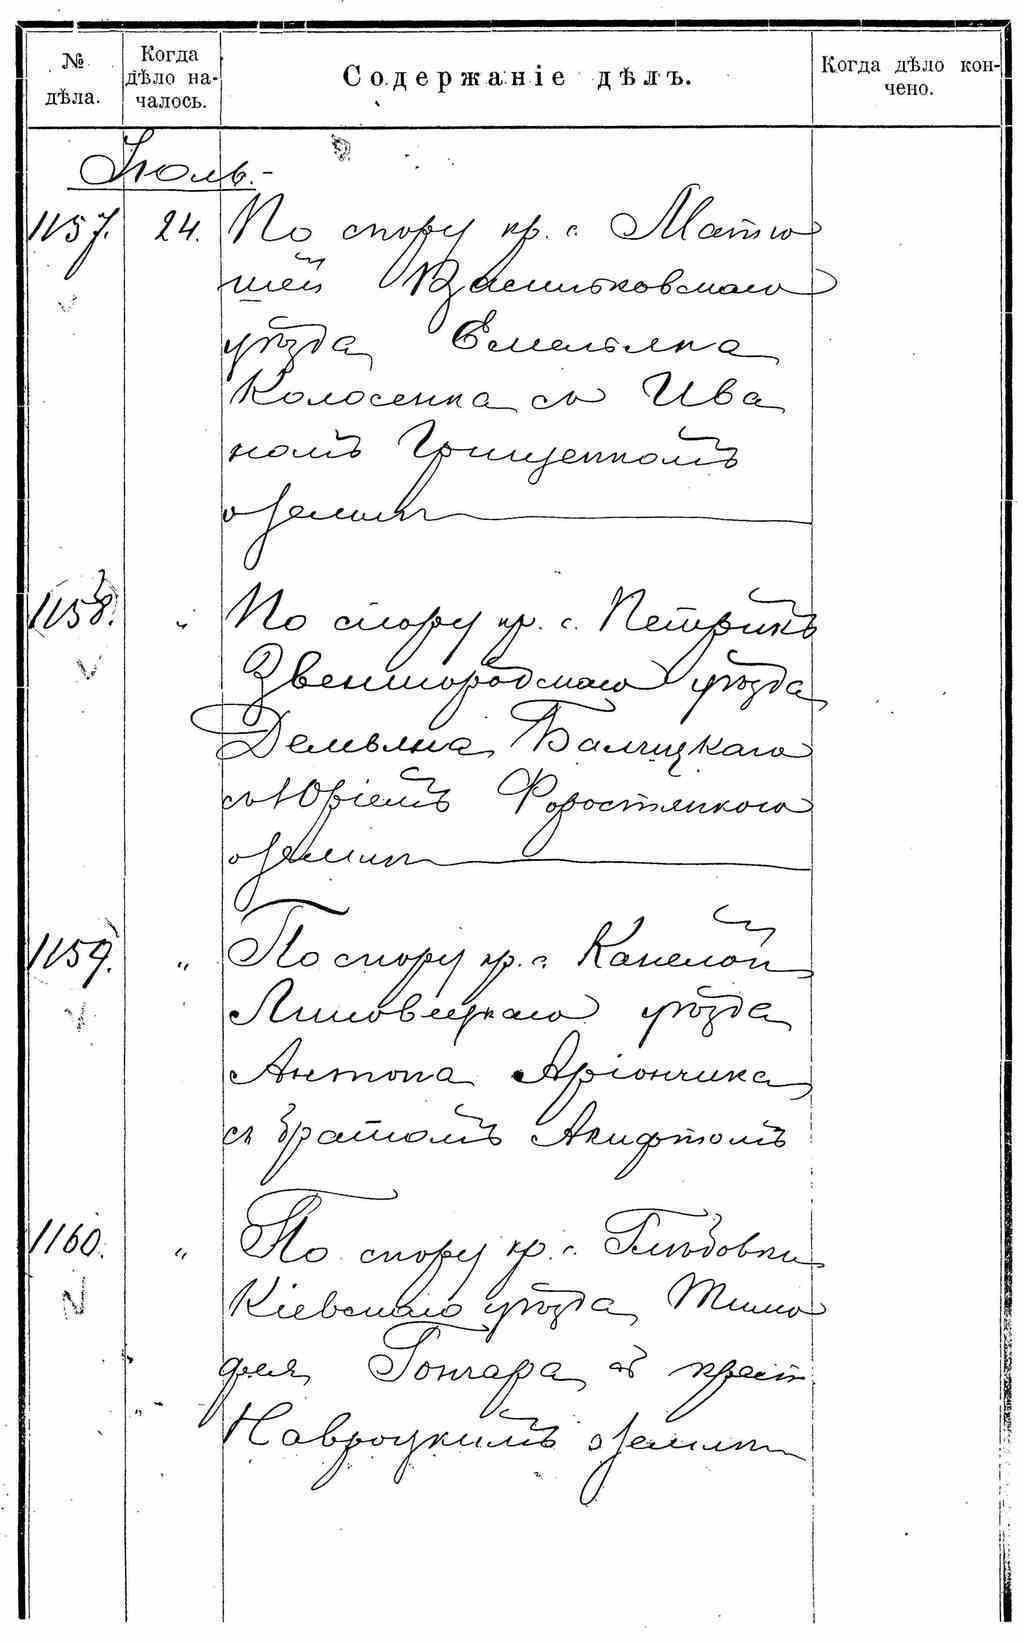 № дѣла.
Когда дѣло на-
чалось.
Содержаніе дѣлъ.
Когда дѣло кон-
чено.
Іюль.-
1157. 24. По спору кр. с. Матю
шей Васильковскаго
уѣзда Емельяна
Колосенка съ Ива
номъ Грищенкомъ
о землѣ
1158. " По спору кр. с. Петрикъ
Звенигородскаго уѣзда
Демьяна Балицкаго
съ Юріемъ Форостянкого
о землѣ
1159. " По спору кр. с. Канелой
Липовецкаго уѣзда
Антона
съ братомъ
1160. " По спору кр. с.
Кіевскаго уѣзда Тимо
фея Гончара съ крест
Навроцкимъ о землѣ